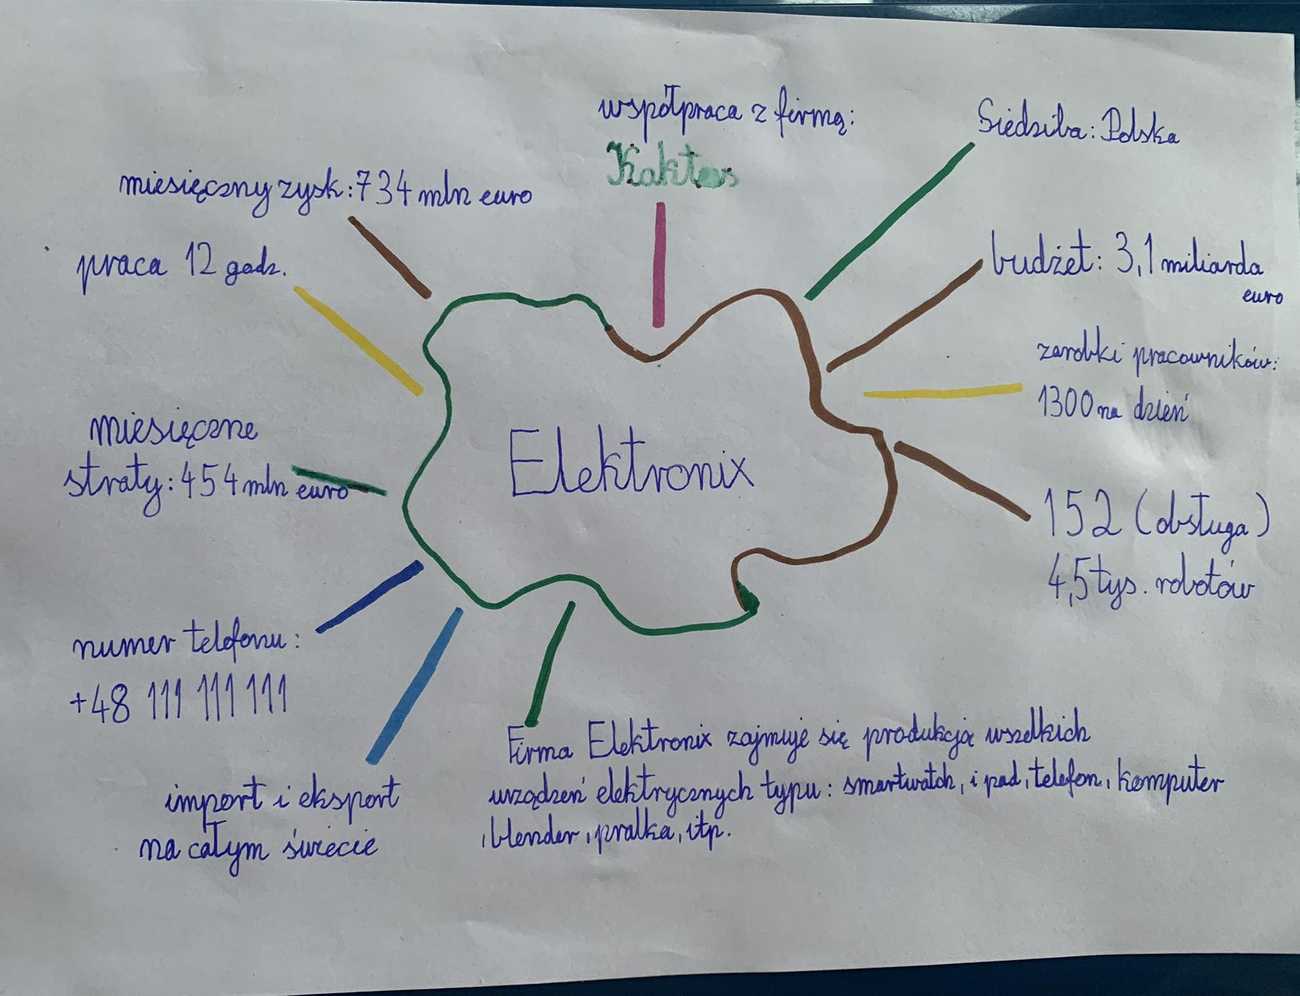 współpraca z firmą:
Kaktus
Siedziba: Polska
miesięczny zysk: 734 mln euro
budżet: 3,1 miliarda
euro
praca 12 godz.
zarobki pracowników:
1300 na dzień
miesięczne
straty: 454 mln euro
Elektronix
152 (obsługa)
4,5 tys. robotów
numer telefonu:
+48 111 111 111
Firma Elektronix zajmuje się produkcją wszelkich
urządzeń elektrycznych typu: smartwatch, i pad, telefon, komputer
, blender, pralka, itp.
import i eksport
na całym świecie